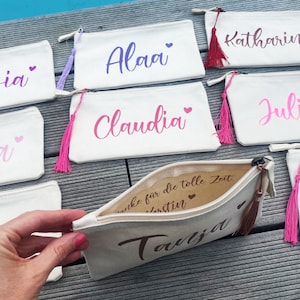 Alaa
Katharin
ia
Claudia
Juli
a
für die tolle Zeit
Kerstin
Tanja